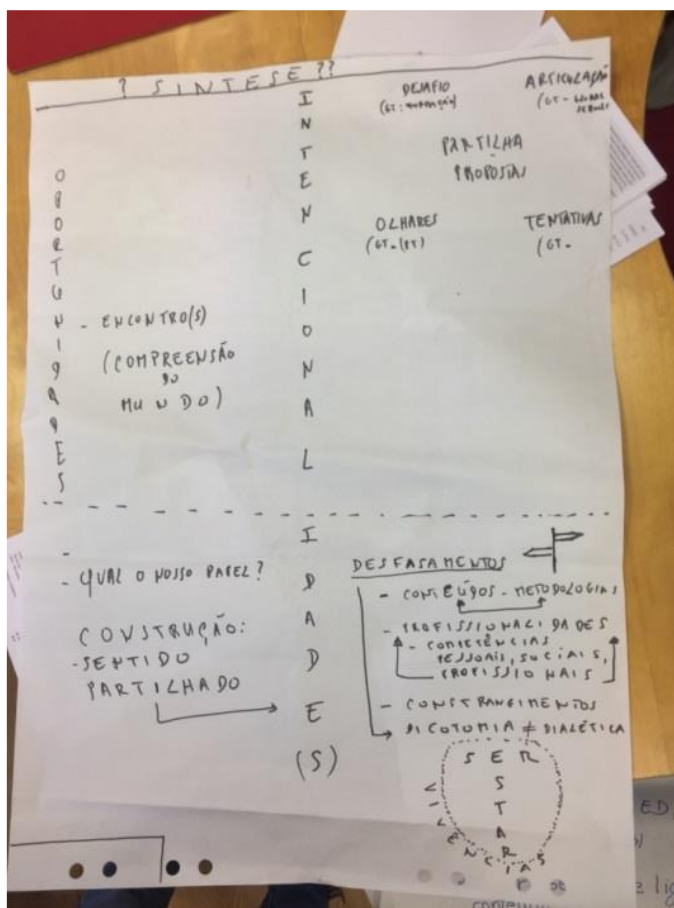 ? SÍNTESE ??
OPORTUNIDADES
- ENCONTRO(S)
(COMPREENSÃO
DO
MUNDO)
INTENCIONALIDADE(S)
DESAFIO
(GT:
ARTICULAÇÃO
(GT -
PARTILHA
PROPOSTAS
OLHARES
TENTATIVAS
(GT -
-
- QUAL O NOSSO PAPEL?
CONSTRUÇÃO:
- SENTIDO
PARTILHADO
DESFASAMENTOS
- CONTEÚDOS - METODOLOGIAS
- PROFISSIONALIDADES
- COMPETÊNCIAS
PESSOAIS, SOCIAIS,
PROFISSIONAIS
- CONSTRANGIMENTOS
DICOTOMIA ≠ DIALÉTICA
SER
ESTAR
VIVÊNCIAS
ED